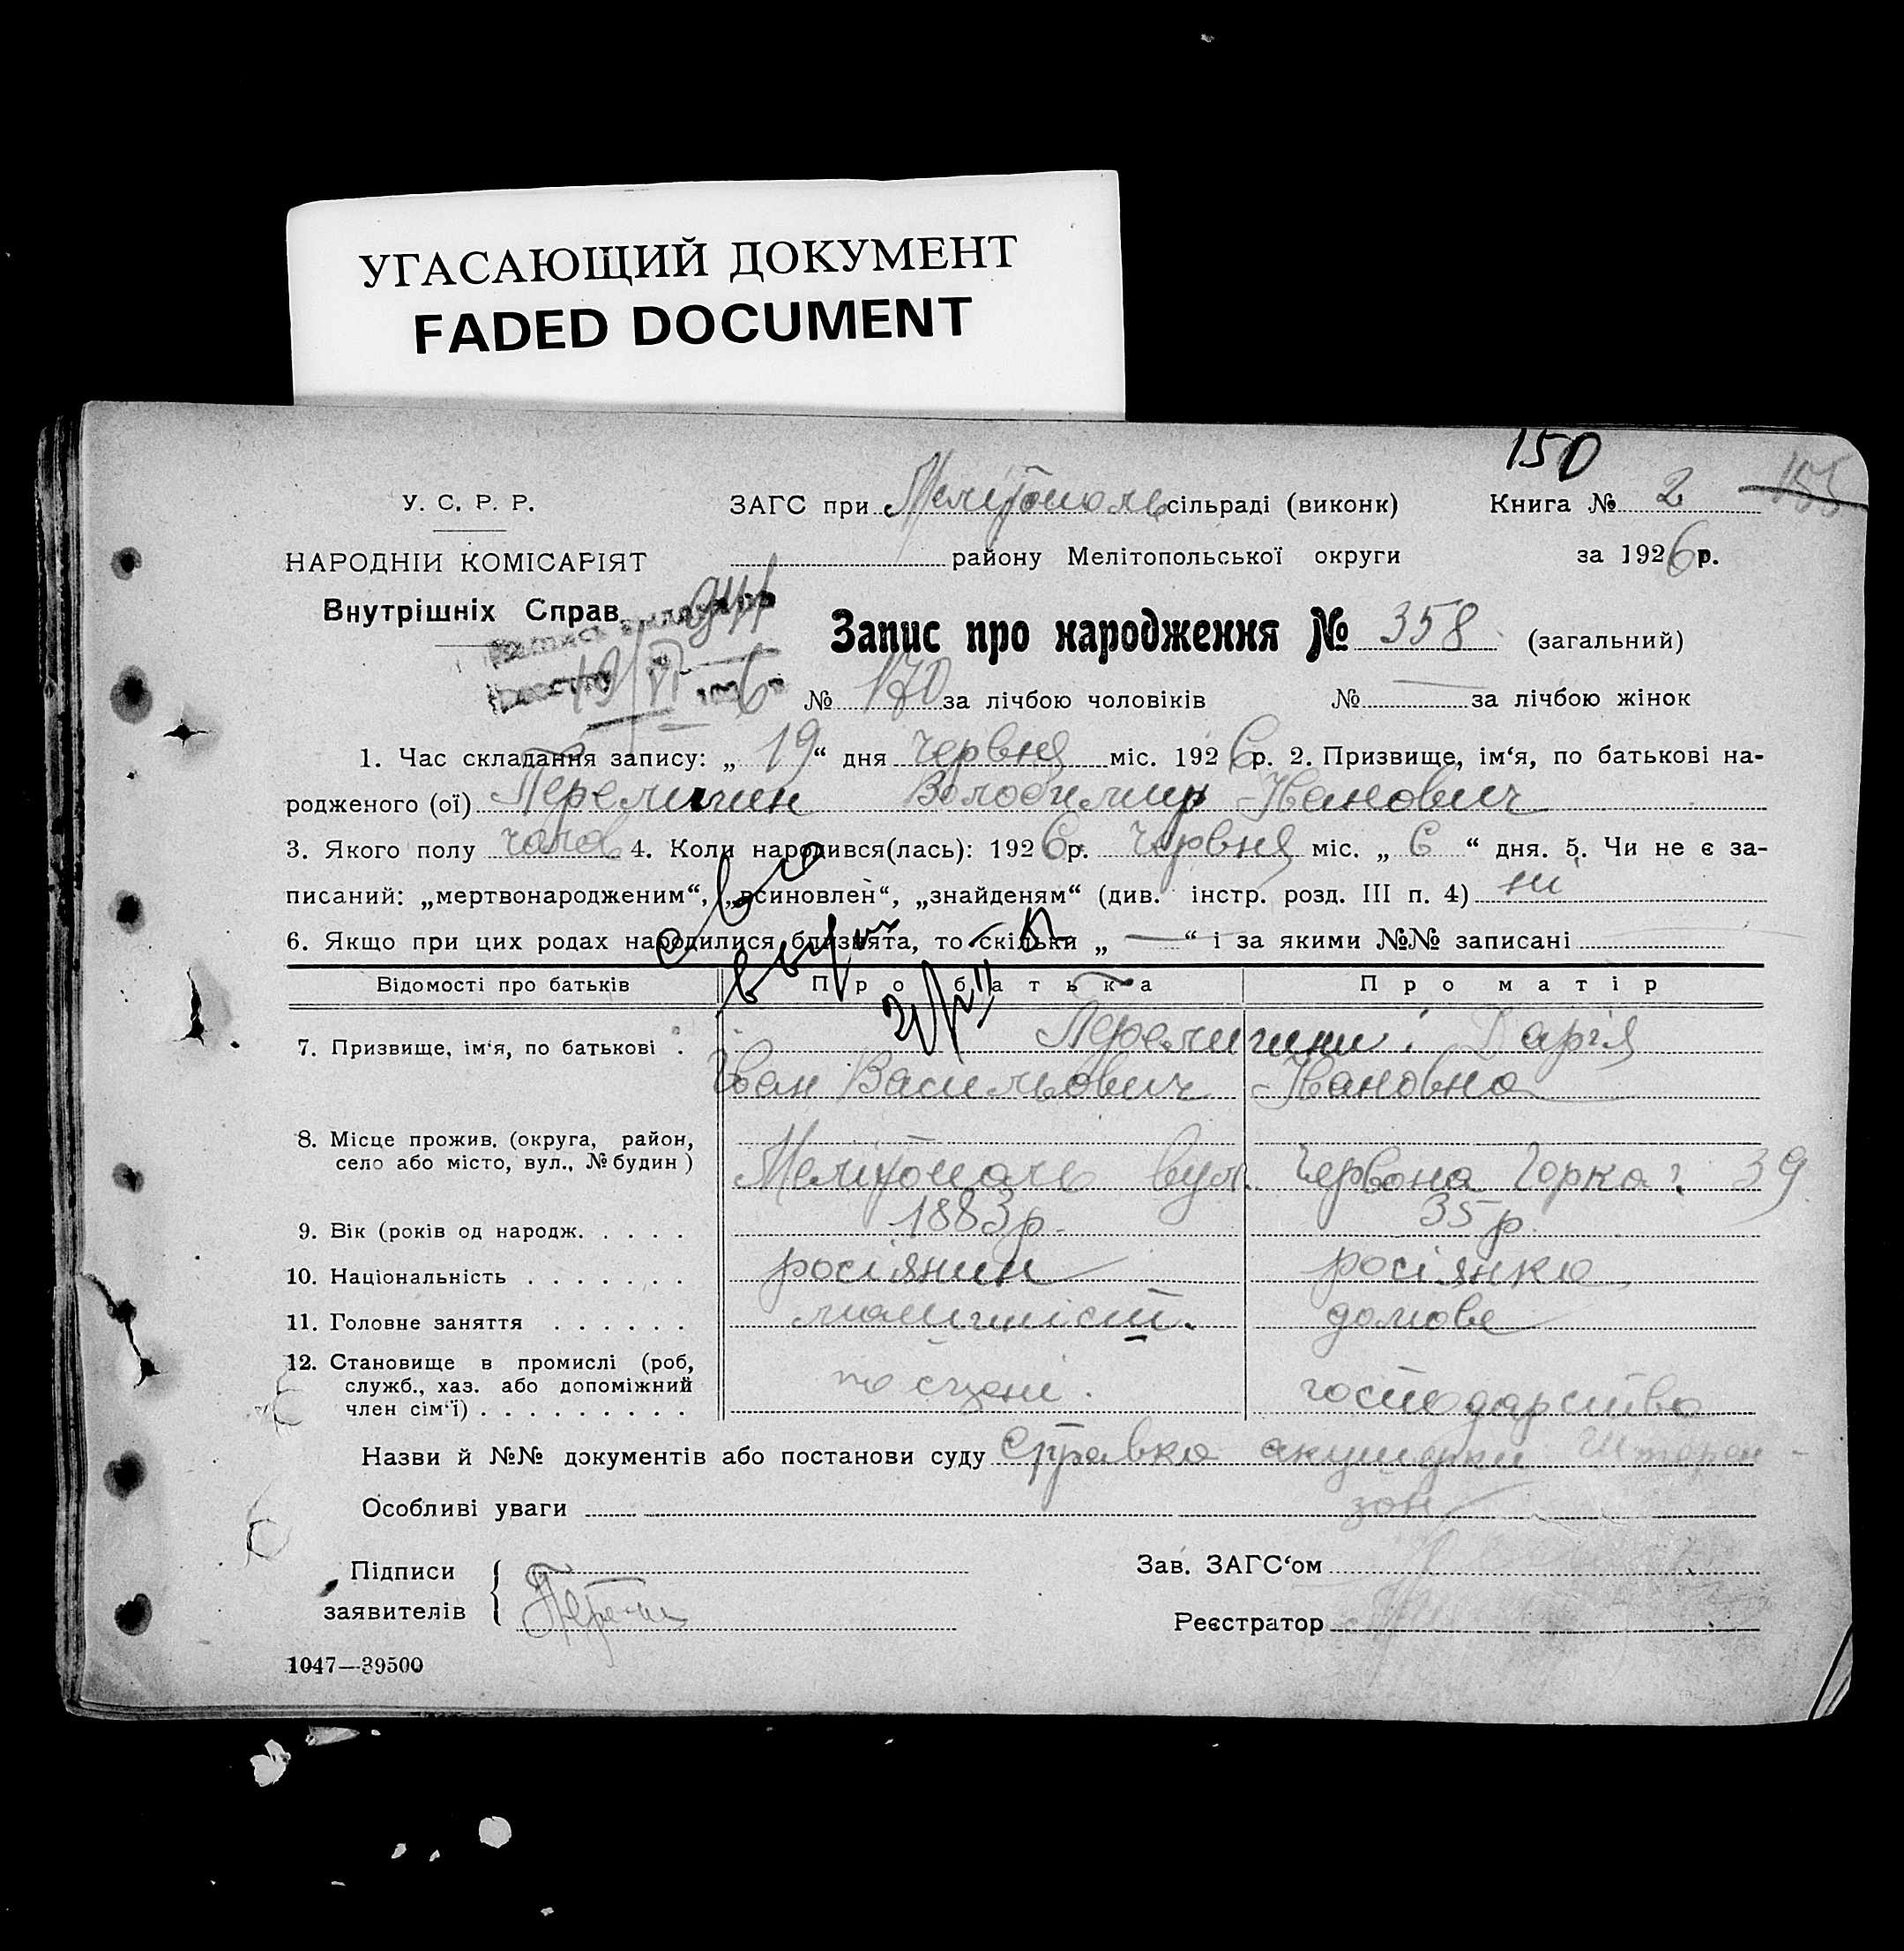 УГАСАЮЩИЙ ДОКУМЕНТ
FADED DOCUMENT
150
У. С. Р. Р.
ЗАГС при Мелітополь сільраді (виконк)
Книга № 2 155
НАРОДНІИ КОМІСАРІЯТ
району Мелітопольської округи
за 1926 р.
Внутрішніх Справ
Запис про народження № 358 (загальний)
19/VI 1926
№ 170 за лічбою чоловіків № — за лічбою жінок
1. Час складання запису: „ 19 “ дня червня міс. 1926 р. 2. Призвище, ім‘я, по батькові на-
родженого (ої) Володимир Іванович
3. Якого полу чолов 4. Коли народився(лась): 1926 р. червня міс. „ 6 “ дня. 5. Чи не є за-
писаний: „мертвонародженим“, „всиновлен“, „знайденям“ (див. інстр. розд. III п. 4) ні
6. Якщо при цих родах народилися близнята, то скільки „ — “ і за якими №№ записані
Відомості про батьків Про батька Про матір
7. Призвище, ім‘я, по батькові . Дарія
Іван Васильович Івановна
8. Місце прожив. (округа, район,
село або місто, вул., № будин )
Мелітополь вул. Червона Горка 39
9. Вік (років од народж. . . . . 1883 р. 35 р.
10. Національність . . . . . . . росіянин росіянка
11. Головне заняття . . . . . . машиніст. домове
12. Становище в промислі (роб,
служб., хаз. або допоміжний
член сім‘ї) . . . . . . . . .
по сцені. господарство
Назви й №№ документів або постанови суду Справка акушерки
Особливі уваги
Підписи
заявителів
Зав. ЗАГС‘ом
Реєстратор
1047—39500